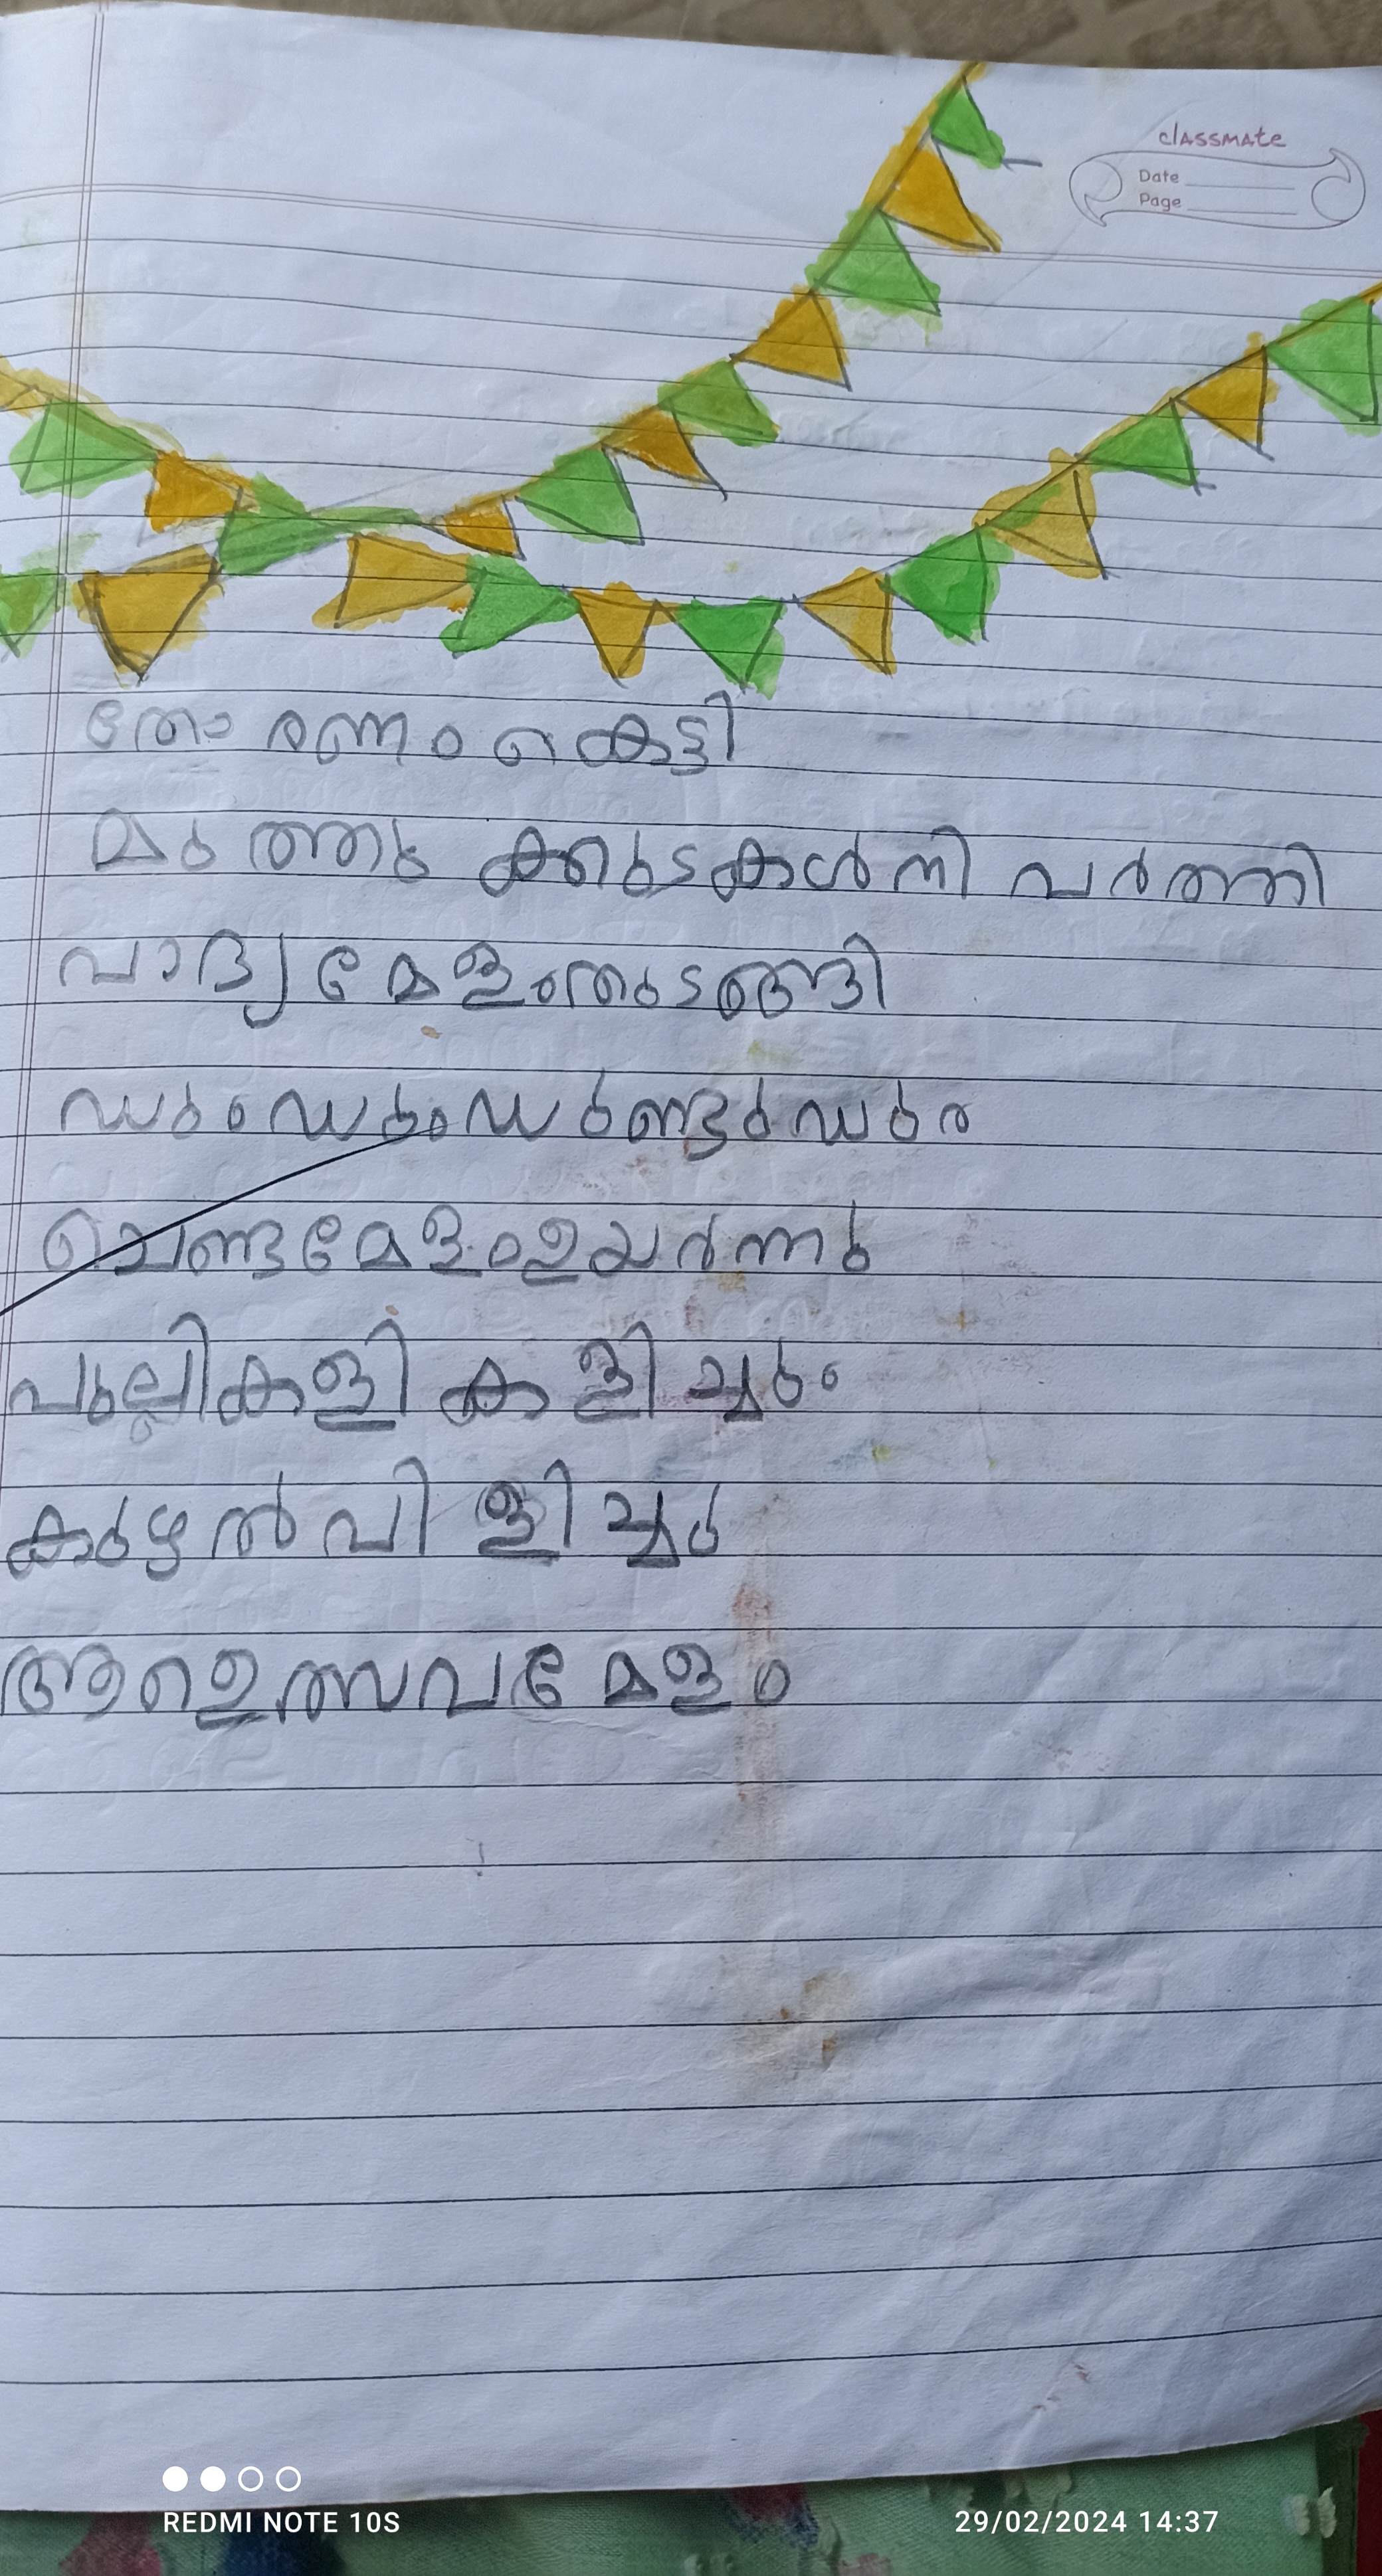 classmate
Date
Page
തോരണം കെട്ടി
മുത്തു ക്കുടകൾ നി വർത്തി
വാദ്യ മേളംതുടങ്ങി
ഡുംഡുംഡുണ്ടുഡുര
ചെണ്ടമേളംഉയർന്നു
പുലികളി കളിച്ചും
കുഴൽവിളിച്ചു
ആഉത്സവമേളം
REDMI NOTE 10S
29/02/2024 14:37